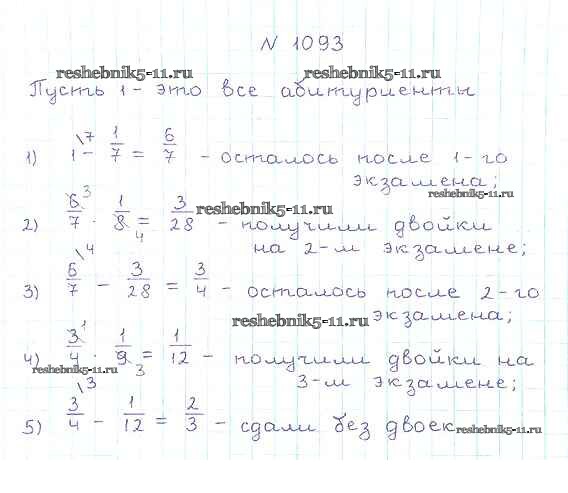 N 1093
reshebnik5-11.ru reshebnik5-11.ru
Пусть 1 - это все абитуриенты
1) 1\7 - 1/7 = 6/7 - осталось после 1-го
экзамена;
reshebnik5-11.ru
2) 6/7 3 · 1/8 4 = 3/28 - получили двойки
reshebnik5-11.ru
на 2-м экзамене;
3) 6/7 \4 - 3/28 = 3/4 - осталось после 2-го
reshebnik5-11.ru экзамена;
4) 3/4 1 · 1/9 3 = 1/12 - получили двойки на
reshebnik5-11.ru 3-м экзамене;
5) 3/4 \3 - 1/12 = 2/3 - сдали без двоек
reshebnik5-11.ru